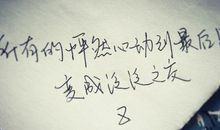 所有的怦然心动到最后
变成泛泛之交